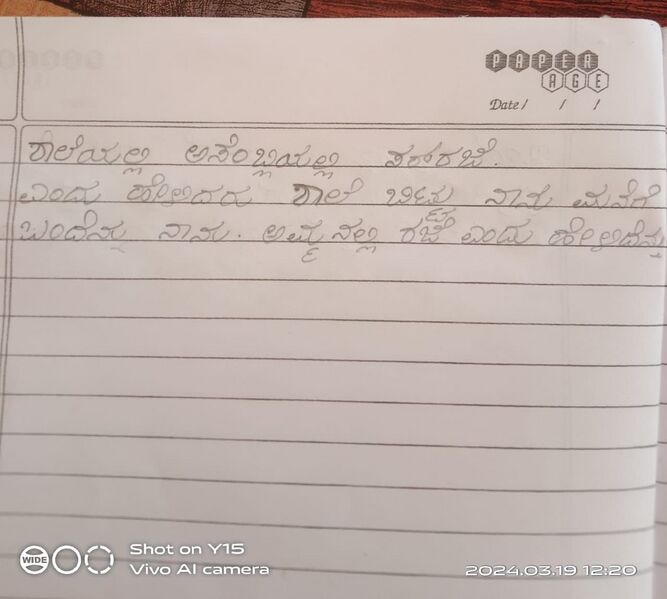 PAPER
AGE
Date / / /
ಶಾಲೆಯಲ್ಲಿ ಅಸೆಂಬ್ಲಿಯಲ್ಲಿ
ಎಂದು ಹೇಳಿದರು ಶಾಲೆ ನಾನು ಮನೆಗೆ
ನಾನು. ರಜೆ ಎಂದು
WIDE
Shot on Y15
Vivo AI camera
2024.03.19 12:20